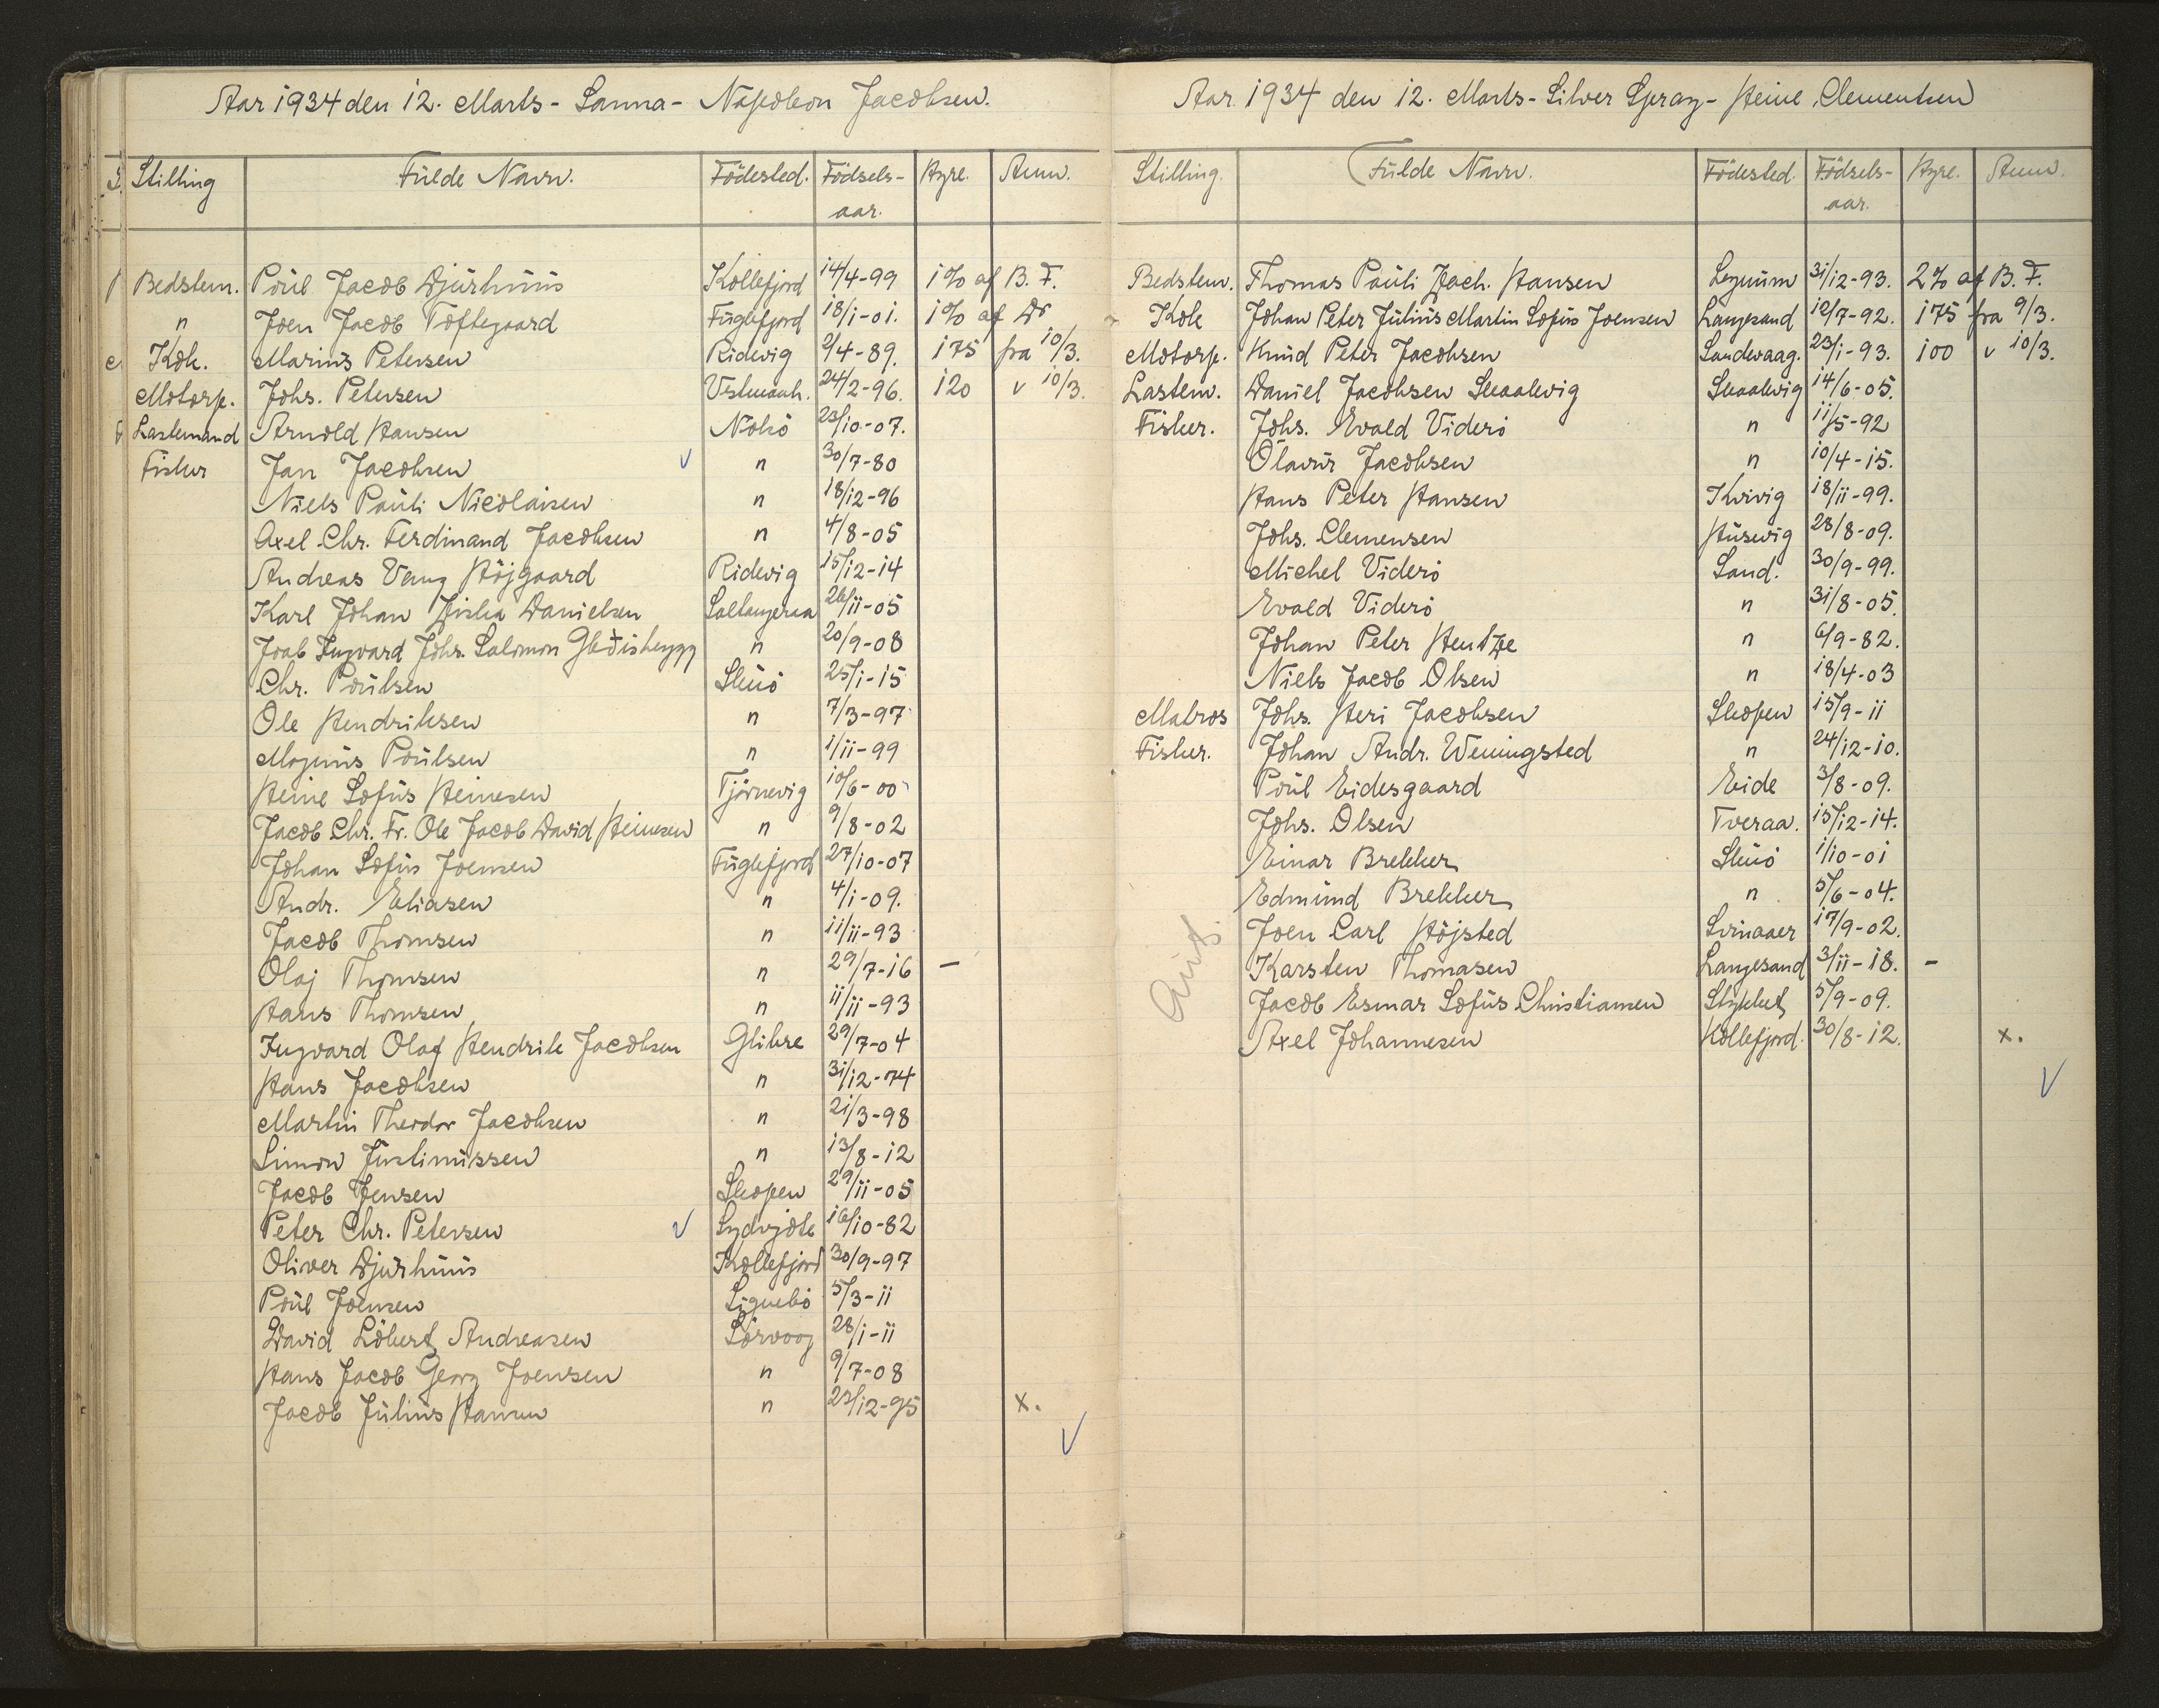 Aar 1934 den 12. Marts - Sanna - Napoleon Jacobsen.
Stilling Fülde Navn. Födested. Födsels- Hyre. Anm.
aar.
Bedstem. Poül Jacob Djürhüüs Kollefjord 14/4-99 1% af B. F.
n Joen Jacob Toftegaard Füglefjord 18/1-01. 1% af Do
Kok. Marius Petersen Ridevig 2/4-89. 175 fra 10/3.
Motorp. Johs. Petersen Vestmanh. 24/2-96. 120 v 10/3.
Lastemand Arnold Hansen Nolsö 23/10-07.
Fisker Jan Jacobsen √ n 30/7-80
Niels Paüli Nicolaisen n 18/12-96
Axel Chr. Ferdinand Jacobsen n 4/8-05
Andreas Vang Höjgaard Ridevig 15/12-14
Karl Johan Ziska Danielsen Saltangeraa 26/11-05
Joab Ingvard Johs. Salomon Gleðisheygg n 20/9-08
Chr. Poülsen Sküö 25/1-15
Ole Hendriksen n 7/3-97
Magnüs Poülsen n 1/11-99
Heine Sofüs Heinesen Tjörnevig 10/6-00
Jacob Chr. Fr. Ole Jacob David Heinesen n 9/8-02
Johan Sofüs Joensen Füglefjord 27/10-07
Andr. Eliasen n 4/1-09.
Jacob Thomsen n 11/11-93
Olaj Thomsen n 29/7-16 -
Hans Thomsen n 11/11-93
Ingvard Olaf Hendrik Jacobsen Glibre 29/7-04
Hans Jacobsen n 31/12-74
Martin Theodor Jacobsen n 21/3-98
Simon Jüstinüssen n 13/8-12
Jacob Jensen Skopen 29/11-05
Peter Chr. Petersen √ Sydrjöte 16/10-82
Oliver Djürhüüs Kollefjord 30/9-97
Poül Joensen Signebö 5/3-11
David Löbert Andreasen Sörvoog 28/1-11
Hans Jacob Georg Joensen n 9/7-08
Jacob Jüliüs Hansen n 23/12-95 x.
√
Aar 1934 den 12. Marts - Silver Spray - Heine Clementsen
Stilling. Fülde Navn. Födested. Födsels- Hyre. Anm.
aar.
Bedstem. Thomas Paüli Zach. Hansen Leynüm 31/12-93. 2% af B. F.
Kok Johan Peter Jüliüs Martin Sofüs Joensen Langesand 12/7-92. 175 fra 9/3.
Motorp. Knüd Peter Jacobsen Sandevaag. 23/1-93. 100 v 10/3.
Lastem. Daniel Jacobsen Skaalvig Skaalvig 14/6-05.
Fisker. Johs. Evald Viderö n 11/5-92
Olavür Jacobsen n 10/4-15.
Hans Peter Hansen Kvivig 18/11-99.
Johs. Clemensen Hüsevig 28/8-09.
Michel Viderö Sand. 30/9-99.
Evald Viderö n 31/8-05.
Johan Peter Hentze n 6/9-82.
Niels Jacob Olsen n 18/4-03
Matros Johs. Heri Jacobsen Skopen 15/9-11
Fisker. Johan Andr. Weningsted n 24/12-10.
Poül Eidesgaard Eide 3/8-09.
Johs. Olsen Tveraa. 15/12-14.
Einar Brekker Sküö 1/10-01
Edmünd Brekker n 5/6-04.
Joen Carl Höjsted Svinaaer 17/9-02.
Karsten Thomasen Langesand 3/11-18. -
Jacob Esmar Sofüs Christiansen Stykket 5/9-09.
Axel Johannesen Kollefjord. 30/8-12. x.
√